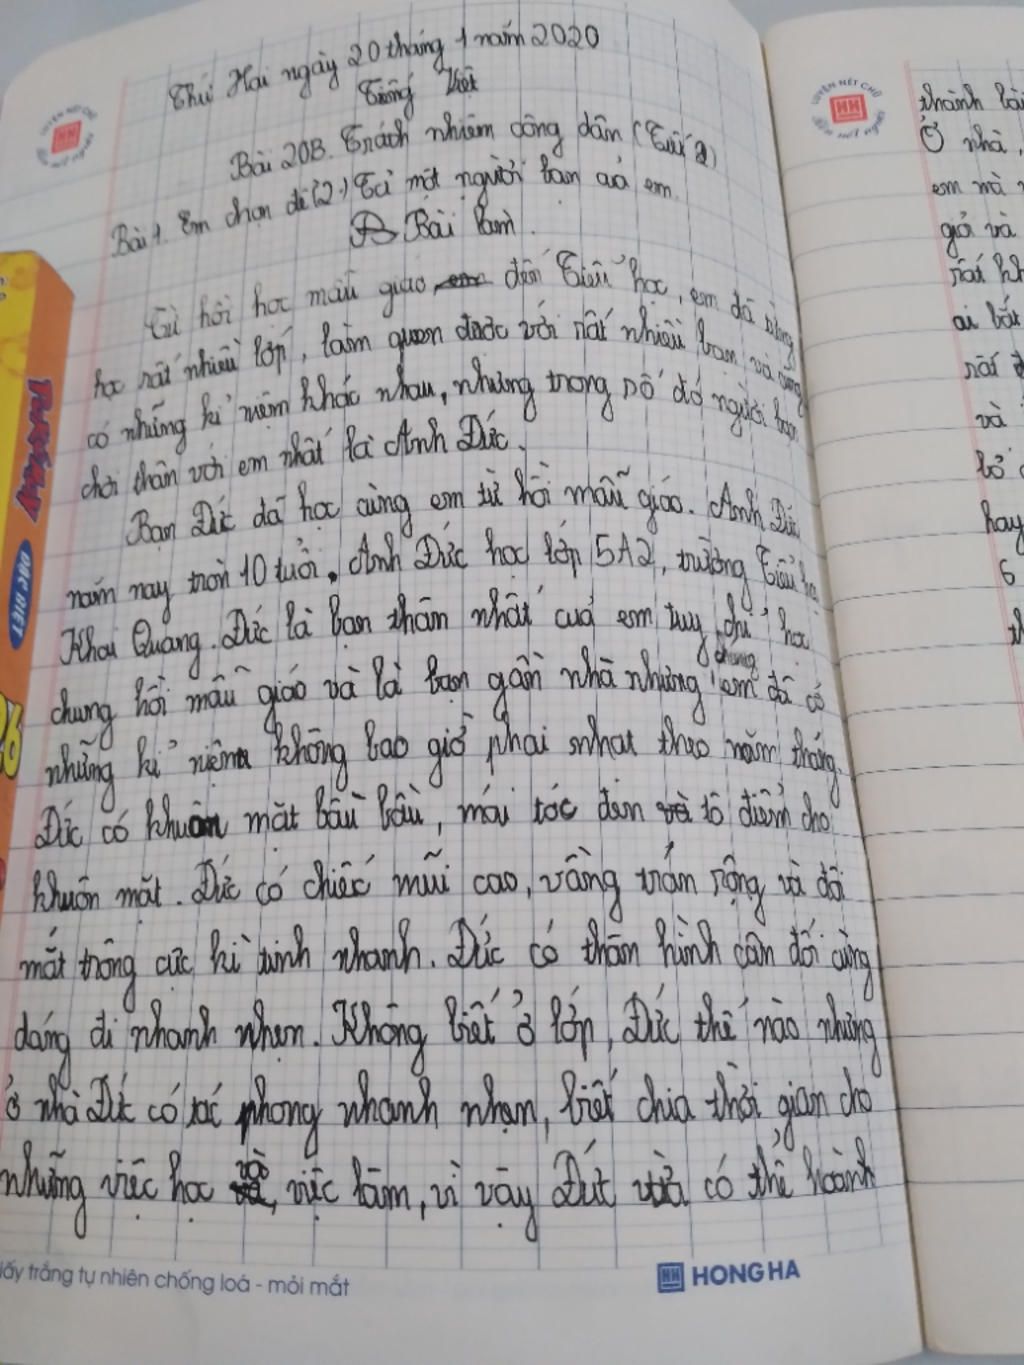 Thứ Hai ngày 20 tháng 1 năm 2020
Tiếng Việt
Bài 20B. Trách nhiệm công dân (Tiết 2)
Bài 1. Em chọn đề (2.) Tả một người bạn của em.
Bài làm.
Từ hồi học mẫu giáo đến Tiểu học, em đã từng
học rất nhiều lớp, làm quen được với rất nhiều bạn và cũng
có những kỉ niệm khác nhau, nhưng trong số đó người bạn
chơi thân với em nhất là Anh Đức.
Bạn Đức đã học cùng em từ hồi mẫu giáo. Anh Đức
năm nay tròn 10 tuổi. Anh Đức học lớp 5A2, trường Tiểu học
Khai Quang. Đức là bạn thân nhất của em tuy chỉ học
chung hồi mẫu giáo và là bạn gần nhà nhưng chúng em đã có
những kỉ niệm không bao giờ phai nhạt theo năm tháng.
Đức có khuôn mặt bầu bầu, mái tóc đen tô điểm cho
khuôn mặt. Đức có chiếc mũi cao, vầng trán rộng và đôi
mắt trông cực kì tinh nhanh. Đức có thân hình cân đối cùng
dáng đi nhanh nhẹn. Không biết ở lớp, Đức thế nào nhưng
ở nhà Đức có tác phong nhanh nhẹn, biết chia thời gian cho
những việc học và, việc làm, vì vậy Đức vừa có thể hoành
lấy trắng tự nhiên chống loá - mỏi mắt
HONG HA
ĐẶC BIỆT
LUYỆN NÉT CHỮ
thành bài
Ở nhà,
em mà
giỏ và
rất kh
ai bắt
rất
và
bỏ
hay
6
th